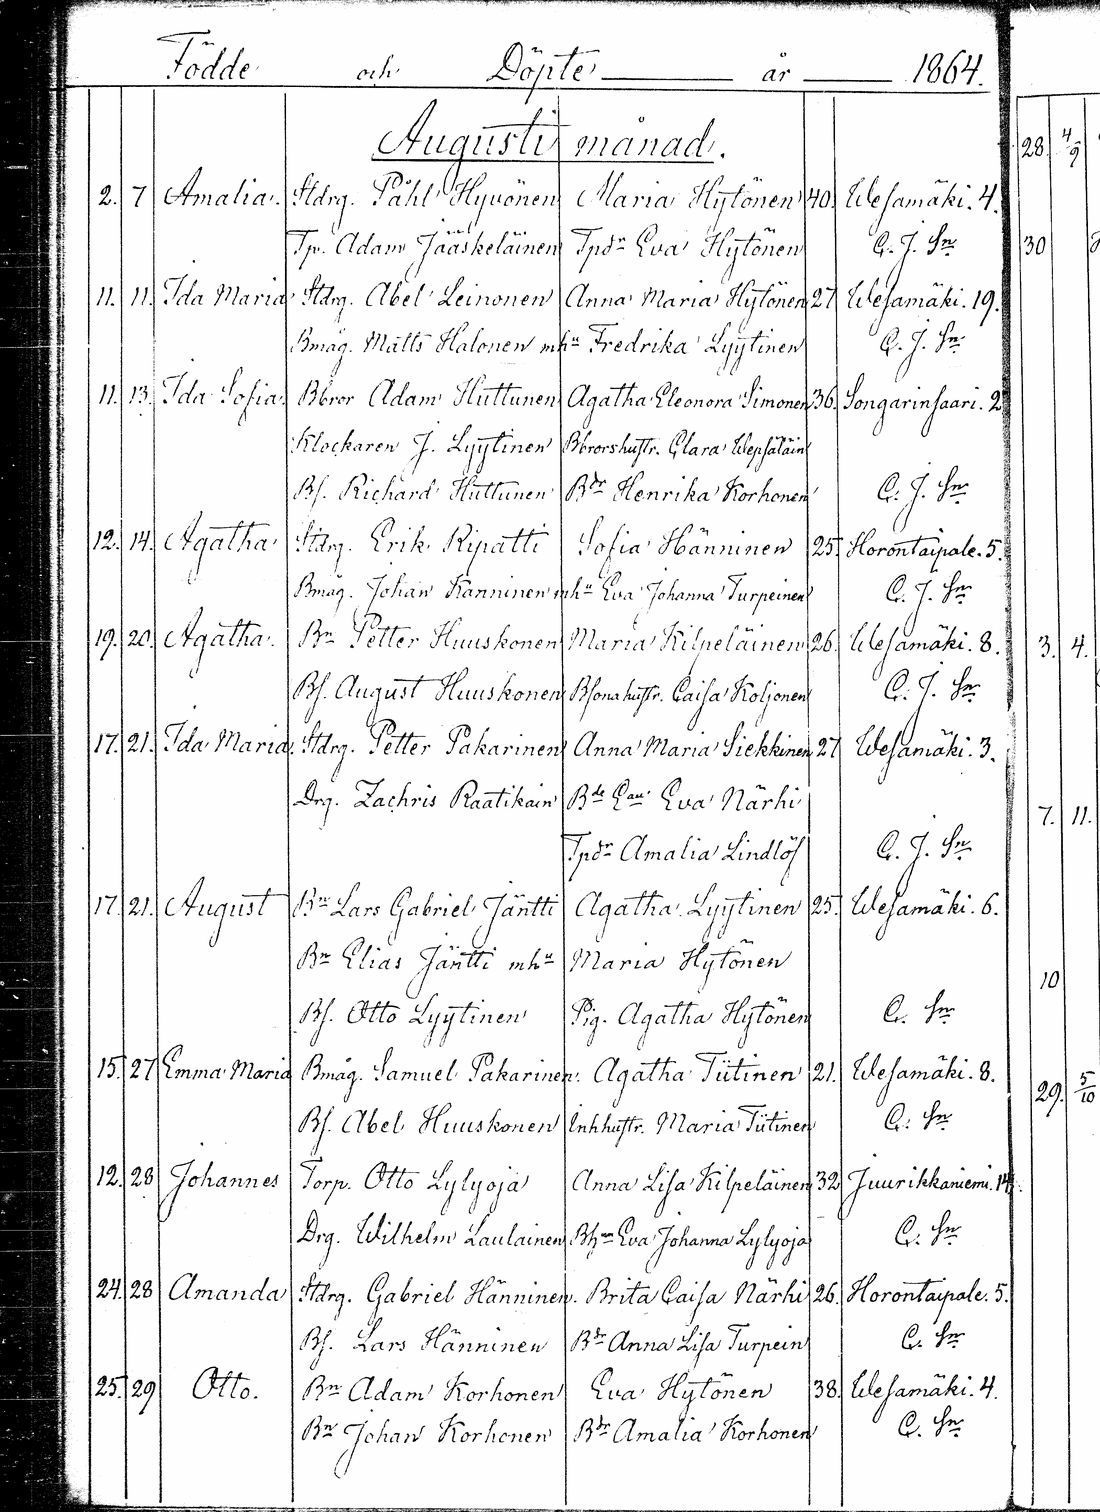 Födde och Döpte år 1864.
Augusti månad.
2. 7 Amalia. Stdrg. Påhl Hyvönen Maria Hytönen 40. Wesamäki. 4.
Tp. Adam Jääskeläinen Tpdr Eva Hytönen C. J. Sn
11. 11. Ida Maria Stdrg. Abel Leinonen Anna Maria Hytönen 27 Wesamäki. 19.
Bmåg. Matts Halonen mhu Fredrika Lyytinen C. J. Sn
11. 13. Ida Sofia. Bbror Adam Huttunen Agatha Eleonora Simonen 36. Songarinsaari. 2
Klockaren J. Lyytinen Bbrorshustr. Clara Wepsäläin
Bs. Richard Huttunen Bdr Henrika Korhonen C. J. Sn
12. 14. Agatha Stdrg. Erik Ripatti Sofia Hänninen 25. Horontaipale. 5.
Bmåg. Johan Känninen mhu Eva Johanna Turpeinen C. J. Sn
19. 20. Agatha. Bn Petter Huuskonen Maria Kilpeläinen 26. Wesamäki. 8.
Bs. August Huuskonen Bsonahustr. Caisa Koljonen C. J. Sn
17. 21. Ida Maria. Stdrg. Petter Pakarinen Anna Maria Siekkinen 27 Wesamäki. 3.
Drg. Zachris Raatikain Bde Eva Närhi
Tpdr Amalia Lindlöf C. J. Sn
17. 21. August Bn Lars Gabriel Jäntti Agatha Lyytinen 25. Wesamäki. 6.
Bn Elias Jäntti mhu Maria Hytönen
Bs. Otto Lyytinen Pig. Agatha Hytönen C. Sn
15. 27 Emma Maria Bmåg. Samuel Pakarinen. Agatha Tiitinen 21. Wesamäki. 8.
Bs. Abel Huuskonen Inhhustr. Maria Tiitinen C. Sn
12. 28 Johannes Torp. Otto Lylyoja Anna Lisa Kilpeläinen 32 Juurikkaniemi. 14.
Drg. Wilhelm Laulainen Eva Johanna Lylyoja C. Sn
24. 28 Amanda Stdrg. Gabriel Hänninen. Brita Caisa Närhi 26. Horontaipale. 5.
Bs. Lars Hänninen Bdr Anna Lisa Turpein C. Sn
25. 29 Otto. Bn Adam Korhonen Eva Hytönen 38. Wesamäki. 4.
Bn Johan Korhonen Bdr Amalia Korhonen C. Sn
28. 4/9
30
3. 4.
7. 11.
10
29. 5/10